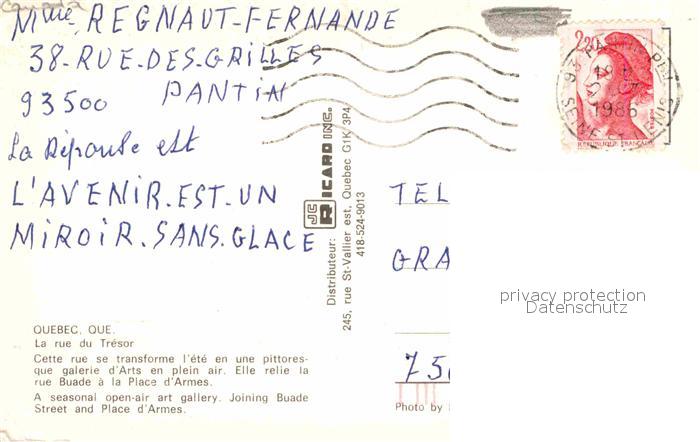 Canada
Mme REGNAUT-FERNANDE
38-RUE-DES-GRILLES
93500 PANTIN
La Réponse est
L'AVENIR.EST.UN
MIROIR.SANS.GLACE
QUEBEC, QUE.
La rue du Trésor
Cette rue se transforme l'été en une pittores-
que galerie d'Arts en plein air. Elle relie la
rue Buade à la Place d'Armes.
A seasonal open-air art gallery. Joining Buade
Street and Place d'Armes.
JC RICARD INC.
Distributeur:
245, rue St-Vallier est, Quebec G1K 3P4
418-524-9013
2,20
REPUBLIQUE FRANÇAISE
93 PANTIN
1986
SEINE
TEL
GRA
privacy protection
Datenschutz
75
Photo by